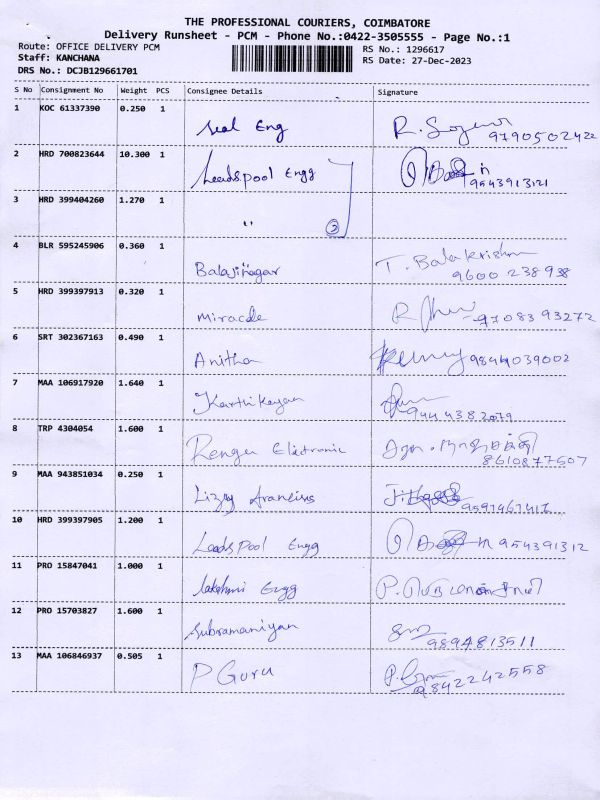 THE PROFESSIONAL COURIERS, COIMBATORE
Delivery Runsheet - PCM - Phone No.:0422-3505555 - Page No.:1
Route: OFFICE DELIVERY PCM
RS No.: 1296617
Staff: KANCHANA
RS Date: 27-Dec-2023
DRS No.: DCJB129661701
S No Consignment No Weight PCS Consignee Details Signature
1 KOC 61337390 0.250 1
Seal Eng R. 9790502422
2 HRD 700823644 10.300 1
Leadspool Engg 9543913121
3 HRD 399404260 1.270 1
" 2
4 BLR 595245906 0.360 1
Balajinagar T. Balakrishnan
9600 238 938
5 HRD 399397913 0.320 1
Miracle R 9708393272
6 SRT 302367163 0.490 1
Anitha 9844039002
7 MAA 106917920 1.640 1
Karthikeyan
9444382079
8 TRP 4304054 1.600 1
Renga Electronic
8610877607
9 MAA 943851034 0.250 1
Lizzy francins
10 HRD 399397905 1.200 1
LeadsPool Engg 954391312
11 PRO 15847041 1.000 1
lakshmi Engg
12 PRO 15703827 1.600 1
Subramaniyan
9894813511
13 MAA 106846937 0.505 1
P Guru
9842242558